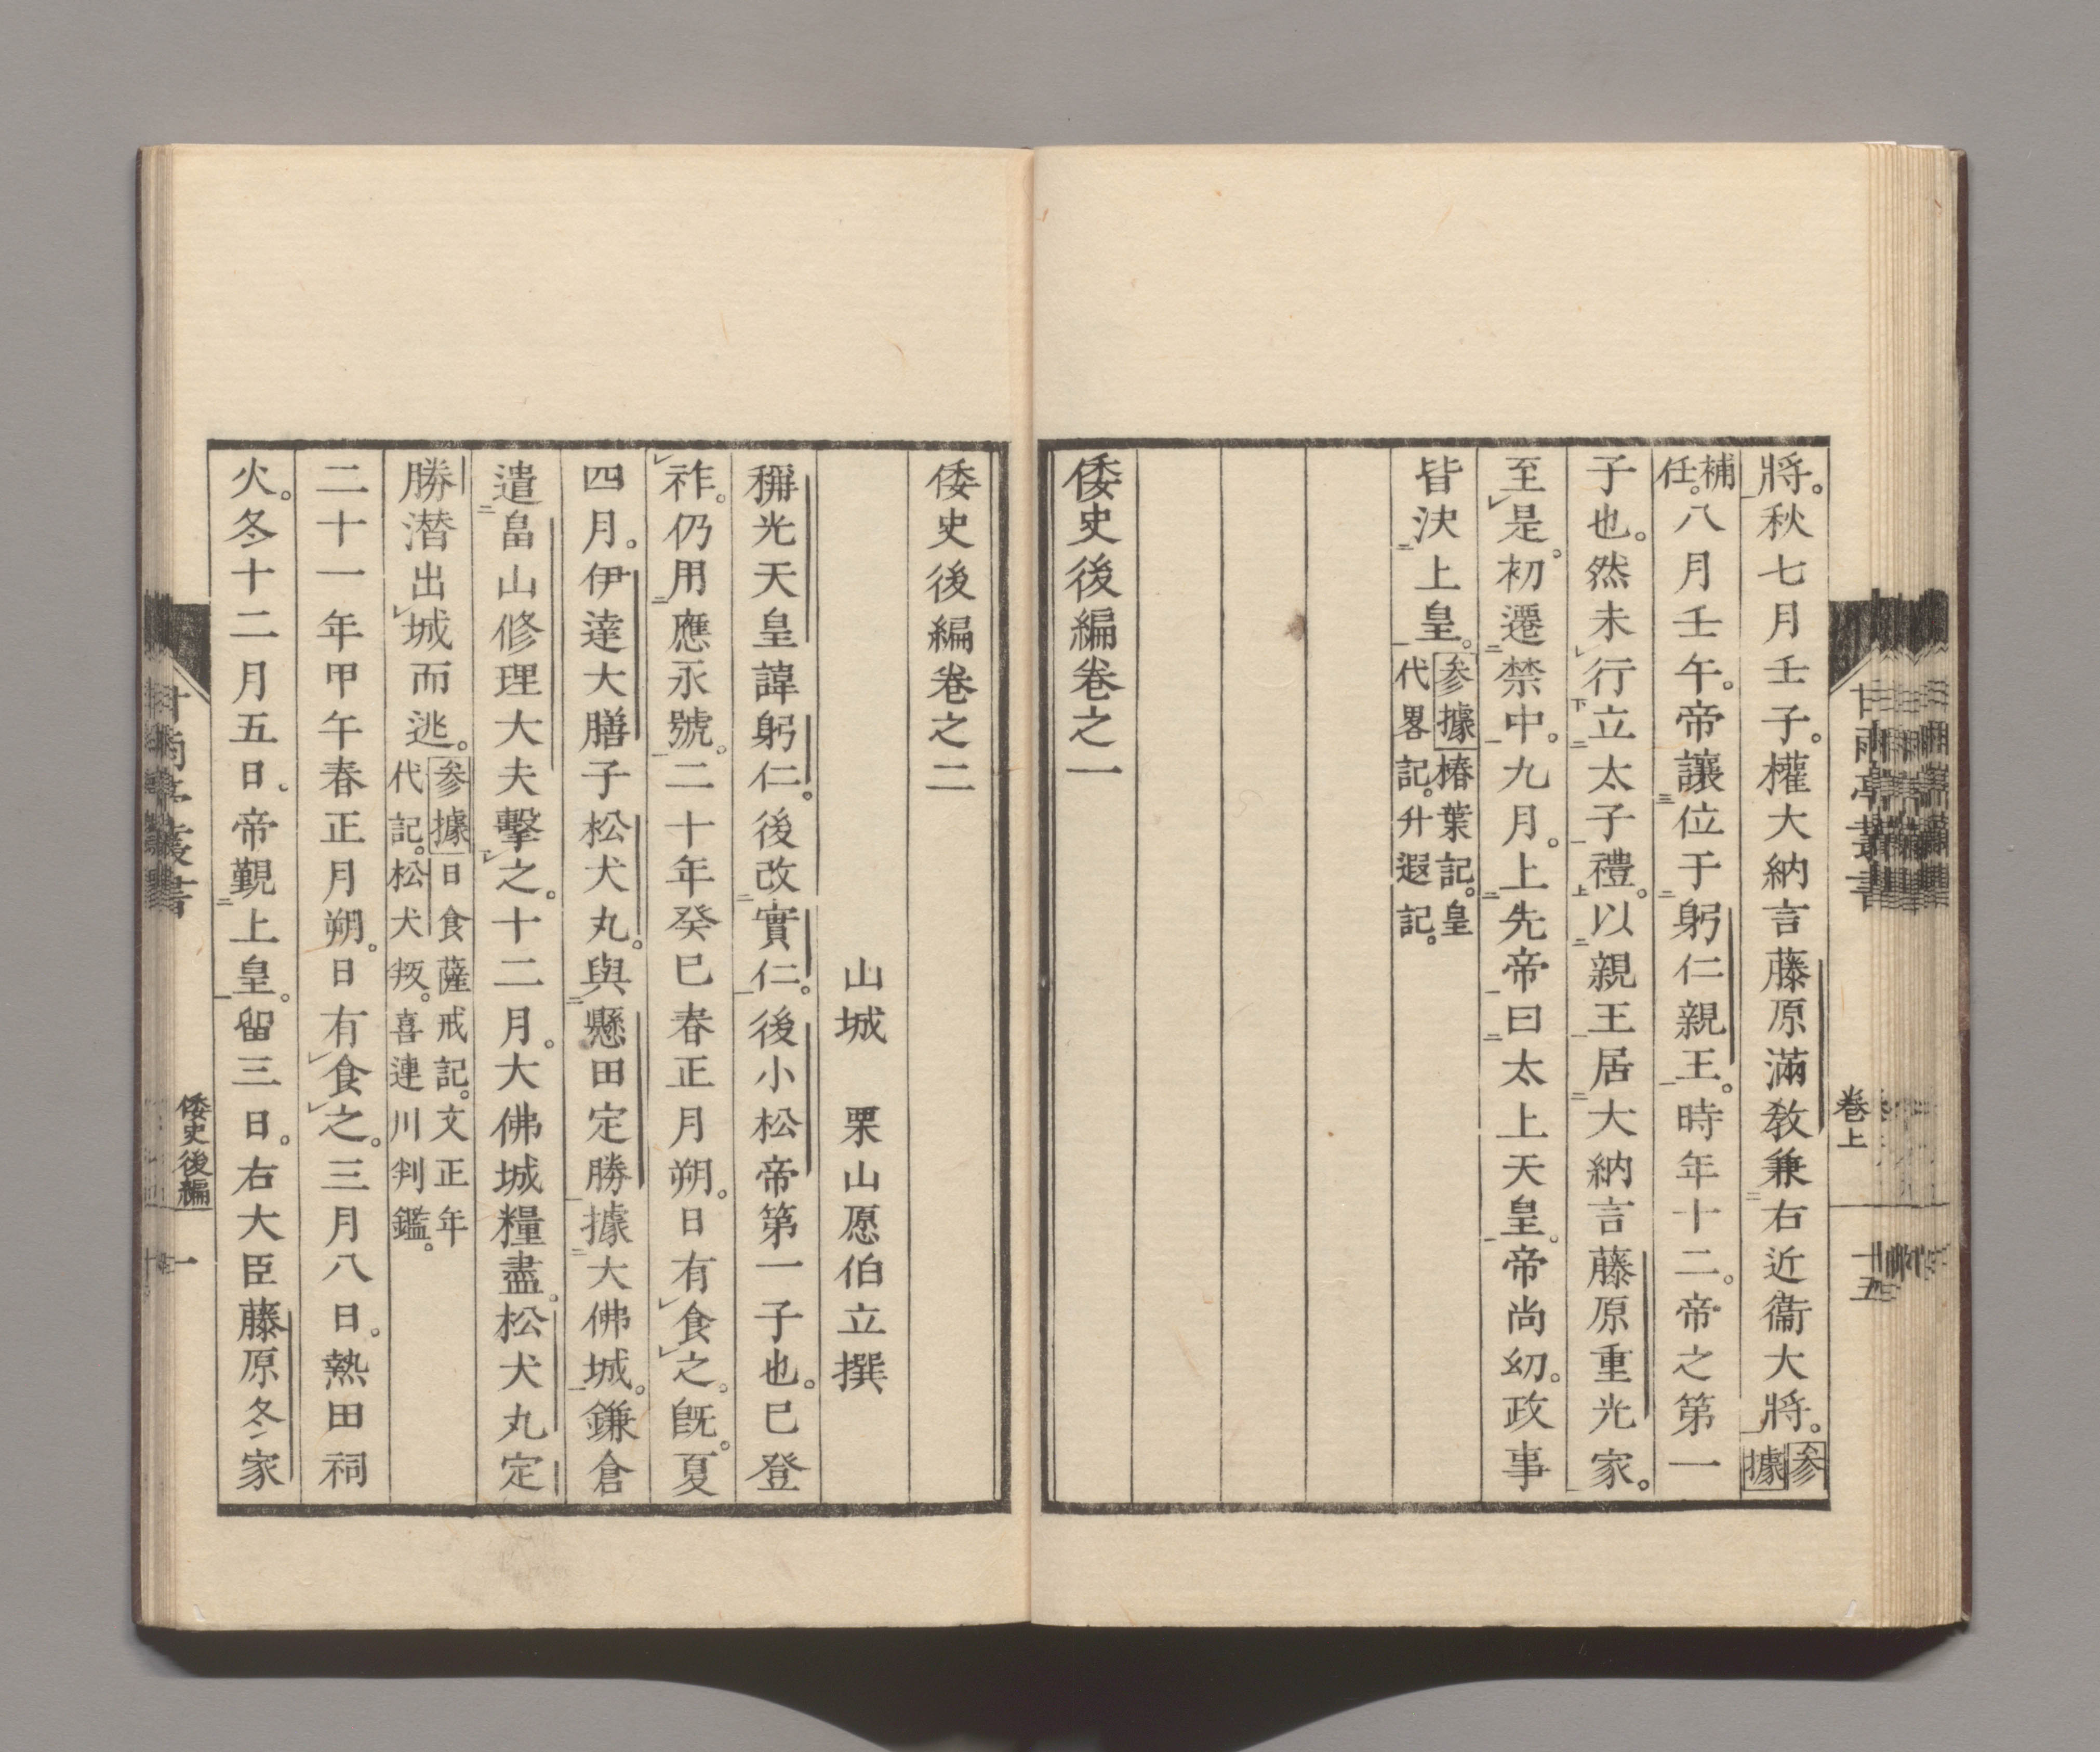 將。秋七月壬子。權大納言藤原滿敎兼右近衞大將。參據
補任。八月壬午。帝讓位于躬仁親王。時年十二。帝之第一
子也。然未行立太子禮。以親王居大納言藤原重光家。
至是。初遷禁中。九月。上先帝曰太上天皇。帝尚幼。政事
皆決上皇。參據椿葉記。皇代畧記。升遐記。
倭史後編卷之一
甘雨亭叢書
卷上
十五
倭史後編卷之二
山城 栗山愿伯立撰
稱光天皇諱躬仁。後改實仁。後小松帝第一子也。已登
祚。仍用應永號。二十年癸巳春正月朔。日有食之。旣。夏
四月。伊達大膳子松犬丸。與懸田定勝據大佛城。鎌倉
遣畠山修理大夫擊之。十二月。大佛城糧盡。松犬丸定
勝潜出城而逃。參據日食薩戒記。文正年代記。松犬叛。喜連川判鑑。
二十一年甲午春正月朔。日有食之。三月八日。熱田祠
火。冬十二月五日。帝覲上皇。留三日。右大臣藤原冬家
甘雨亭叢書
倭史後編
一